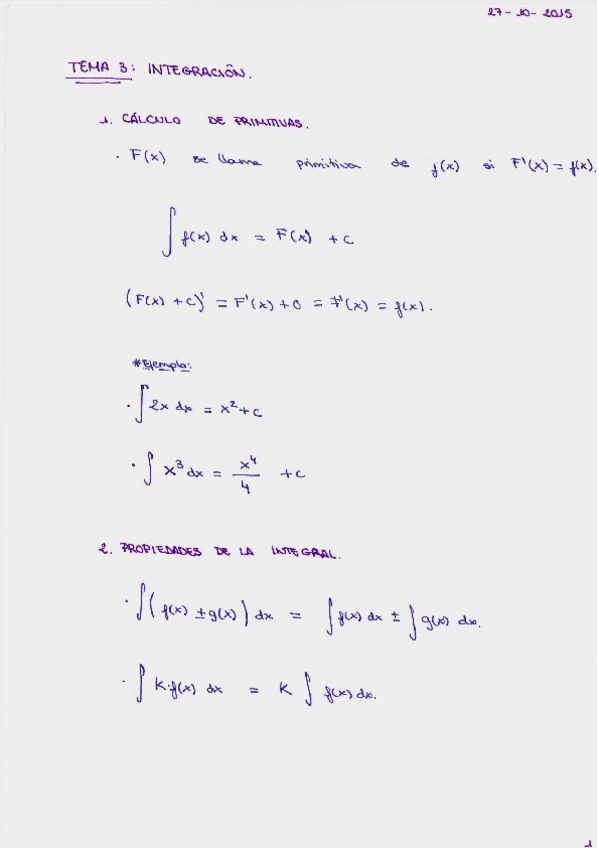 27-10-2015
TEMA 3: INTEGRACIÓN.
1. CÁLCULO DE PRIMITIVAS.
· F(x) se llama primitiva de f(x) si F'(x) = f(x).
∫ f(x) dx = F(x) + c
(F(x) + c)' = F'(x) + 0 = F'(x) = f(x).
* Ejemplo:
· ∫ 2x dx = x² + c
· ∫ x³ dx = x⁴/4 + c
2. PROPIEDADES DE LA INTEGRAL.
· ∫ (f(x) ± g(x)) dx = ∫ f(x) dx ± ∫ g(x) dx.
· ∫ K·f(x) dx = K ∫ f(x) dx.
1